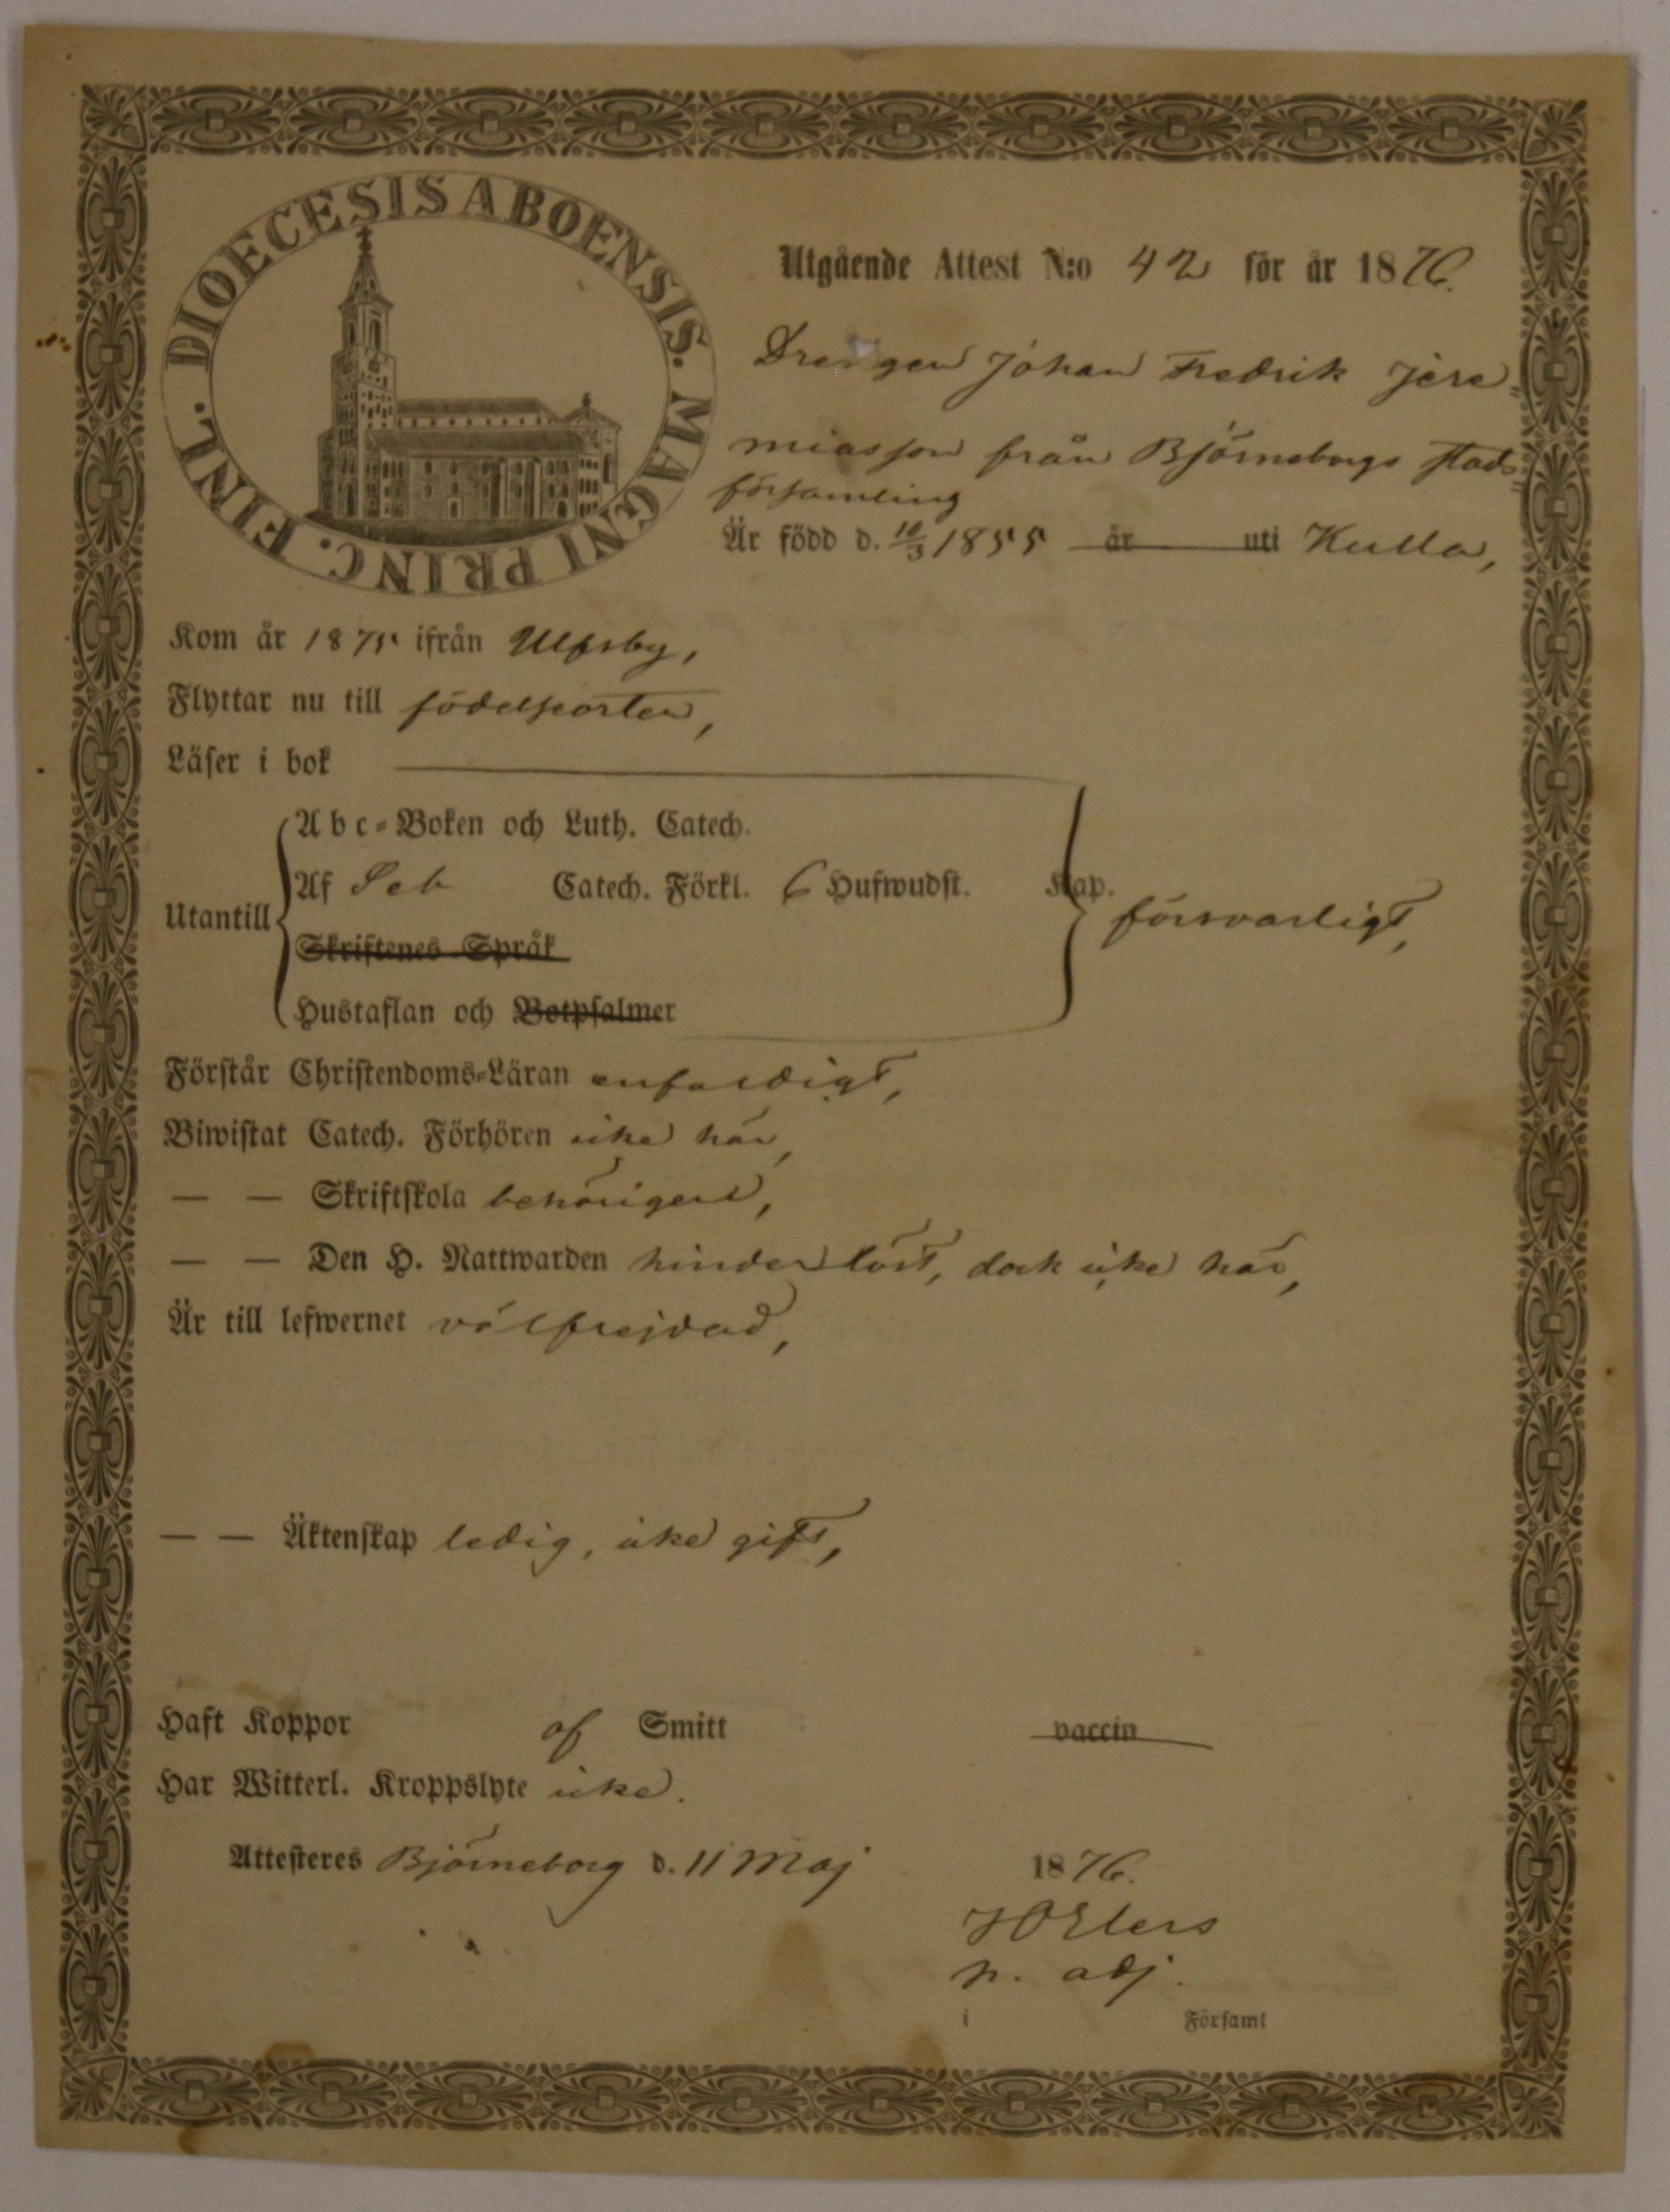 DIOECESIS ABOENSIS. MAGNI PRINC. FINL.
Utgående Attest N:o 42 för år 1876.
Drengen Johan Fredrik Jere=
miasson från Björneborgs stads=
församling
Är född d. 10/3 1855 år uti Kulla,
Kom år 1875 ifrån Ulfsby,
Flyttar nu till födelseorten,
Läser i bok
Abc-Boken och Luth. Catech.
Utantill Af Seb Catech. Förkl. 6 Hufwudst. Kap. försvarligt,
Skriftenes Språk
Hustaflan och Botpsalmer
Förstår Christendoms-Läran enfaldigt,
Biwistat Catech. Förhören icke här,
— — Skriftskola behörigen,
— — Den H. Nattwarden hinderlöst, dock icke här,
Är till lefwernet välfrejdad,
— — Äktenskap ledig, icke gift,
Haft Koppor af Smitt vaccin
Har Witterl. Kroppslyte icke.
Attesteres Björneborg d. 11 Maj 1876.
Elers
adj.
i Församl